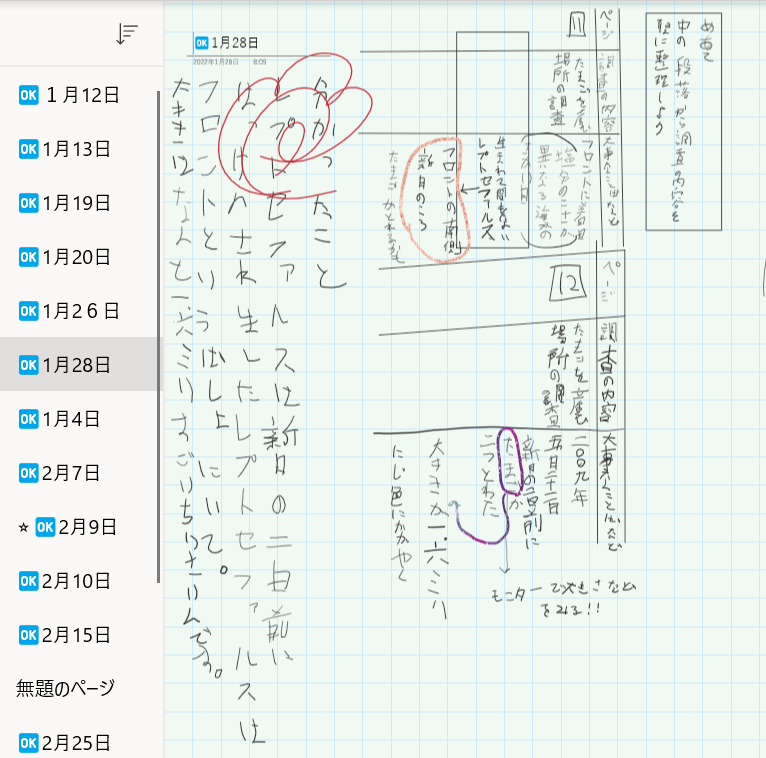 🆗１月12日
🆗1月13日
🆗1月19日
🆗1月20日
🆗1月2６日
🆗1月28日
🆗1月4日
🆗2月7日
☆🆗2月9日
🆗2月10日
🆗2月15日
無題のページ
🆗2月25日
🆗1月28日
2022年1月28日 8:09
めあて
中の段落から調査の内容を
整理しよう
ページ
11
調査の内容
たまごを産む
場所の調査
大事なことばなど
フロントに着目
塩分のこさが
異なる海水の
生まれて間もない
レプトセファルス
フロントの南側
新月のころ
たまごがとれるかも
ページ
12
調査の内容
たまごを産む
場所の調査
大事なことばなど
二〇〇九年
五月二十二日
新月の二日前に
たまごが
二つとれた
大きさが一・六ミリ
にじ色にかがやく
モニターで大きさなど
をみる!!
分かったこと
レプトセファルスは新月の二日前に
生したレプトセファルスは
フロントという
大きさはなんと一・六ミリ